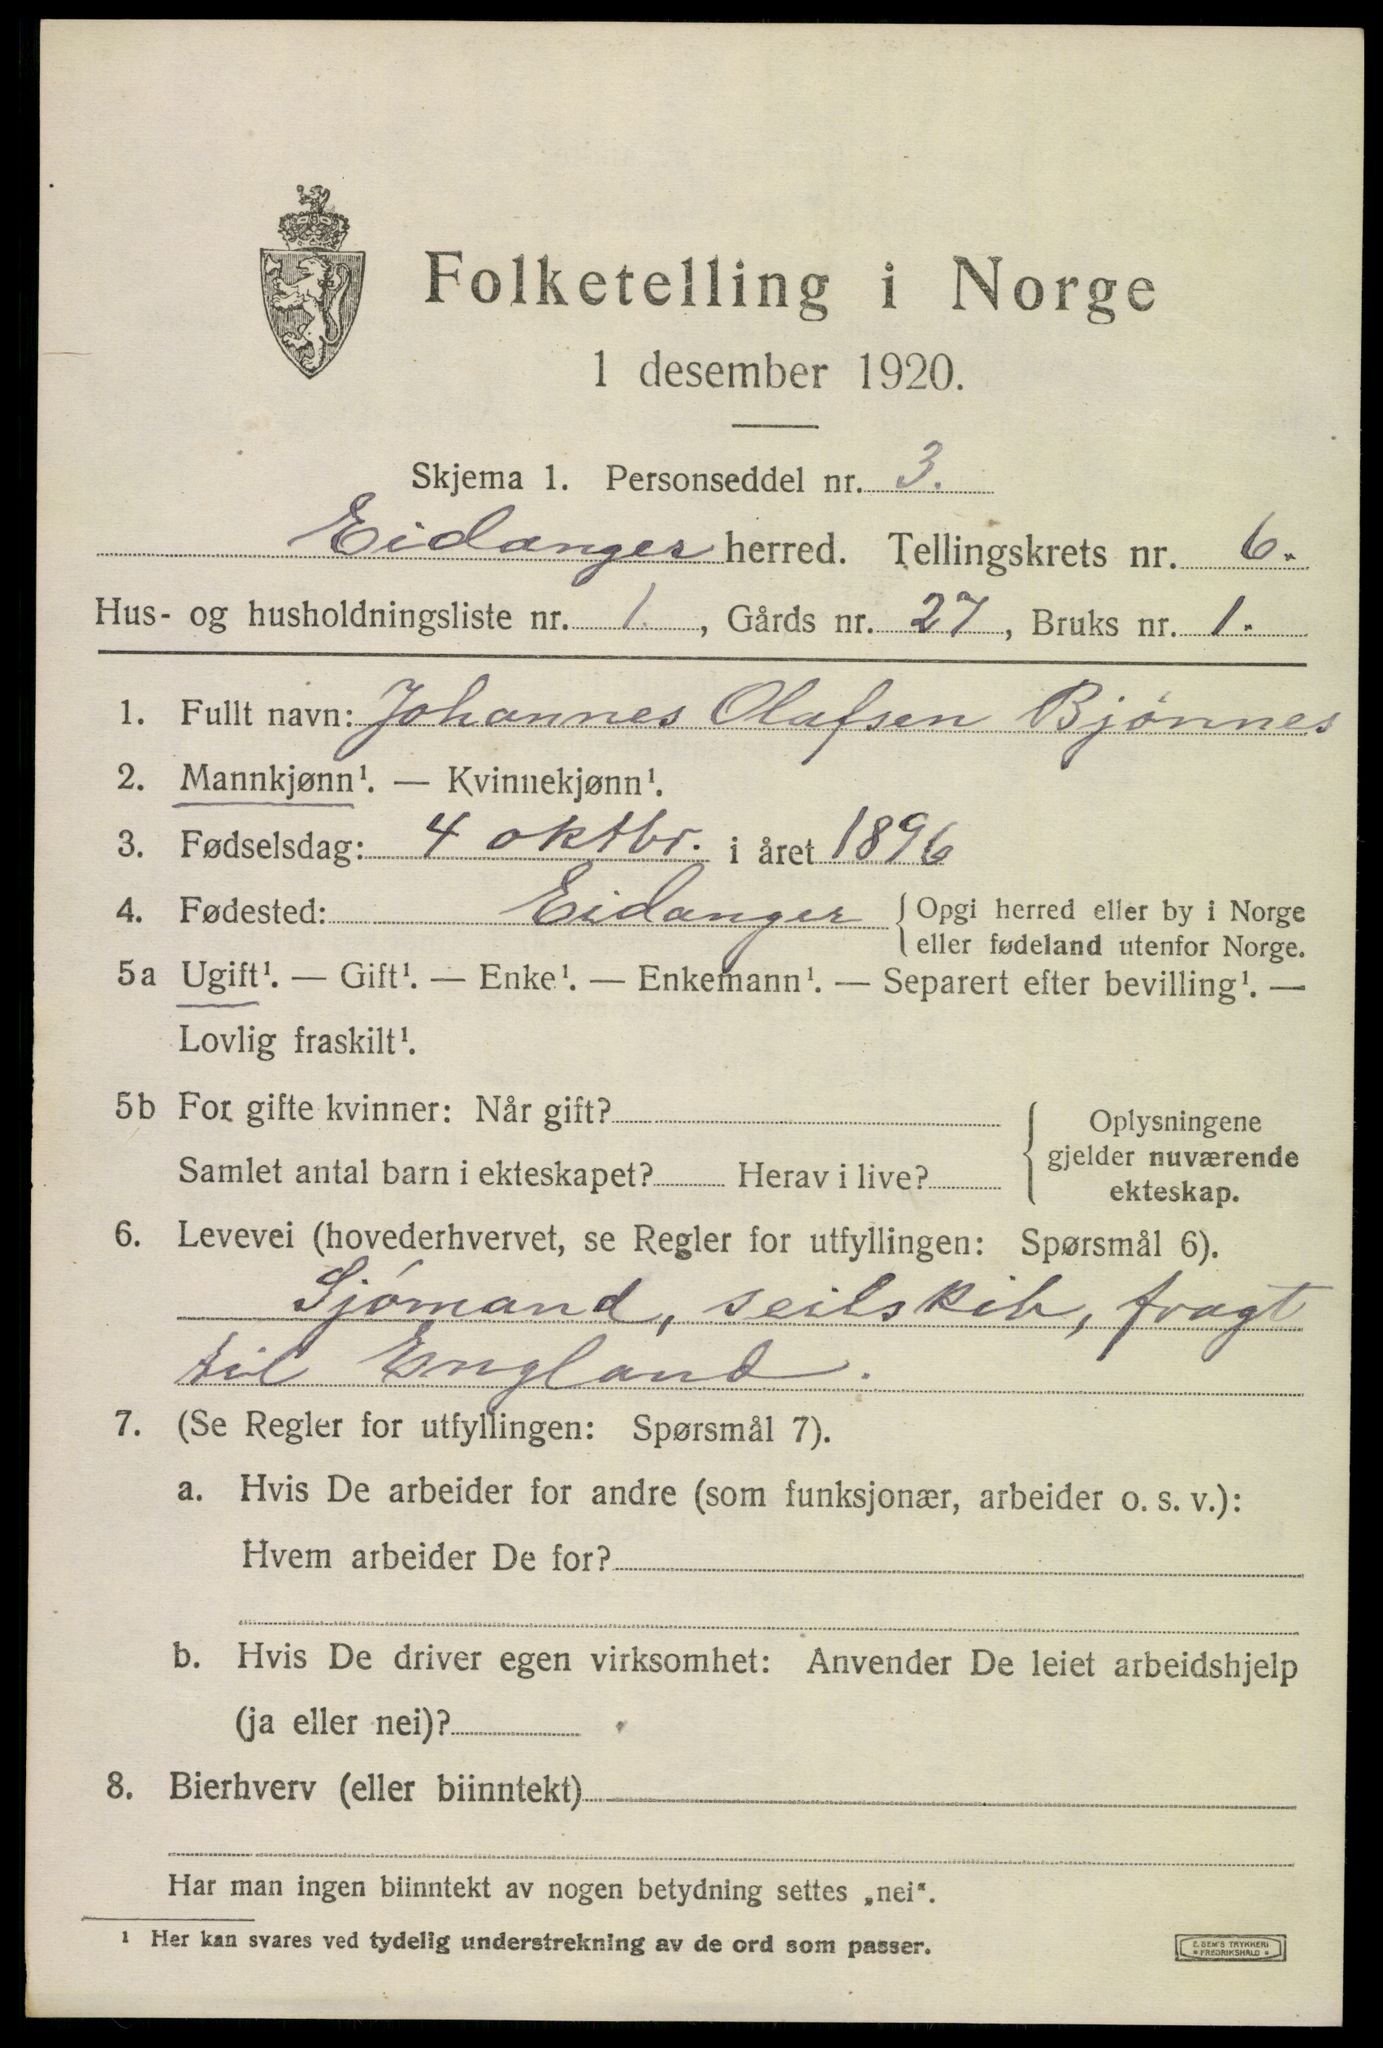 Folketelling i Norge
1 desember 1920.
Skjema 1. Personseddel nr. 3.
Eidanger herred. Tellingskrets nr. 6.
Hus- og husholdningsliste nr. 1., Gårds nr. 27, Bruks nr. 1.
1. Fullt navn: Johannes Olafsen Bjønnes
2. Mannkjønn¹. — Kvinnekjønn¹.
3. Fødselsdag: 4 oktbr. i året 1896
4. Fødested: Eidanger { Opgi herred eller by i Norge
eller fødeland utenfor Norge.
5a Ugift¹. — Gift¹. — Enke¹. — Enkemann¹. — Separert efter bevilling¹. —
Lovlig fraskilt¹.
5b For gifte kvinner: Når gift?
Samlet antal barn i ekteskapet? Herav i live?
{ Oplysningene
gjelder nuværende
ekteskap.
6. Levevei (hovederhvervet, se Regler for utfyllingen: Spørsmål 6).
Sjømand, seilskib, fragt
til England.
7. (Se Regler for utfyllingen: Spørsmål 7).
a. Hvis De arbeider for andre (som funksjonær, arbeider o. s. v.):
Hvem arbeider De for?
b. Hvis De driver egen virksomhet: Anvender De leiet arbeidshjelp
(ja eller nei)?
8. Bierhverv (eller biinntekt)
Har man ingen biinntekt av nogen betydning settes „nei“.
¹ Her kan svares ved tydelig understrekning av de ord som passer.
E. SEM'S TRYKKERI
• FREDRIKSHALD •